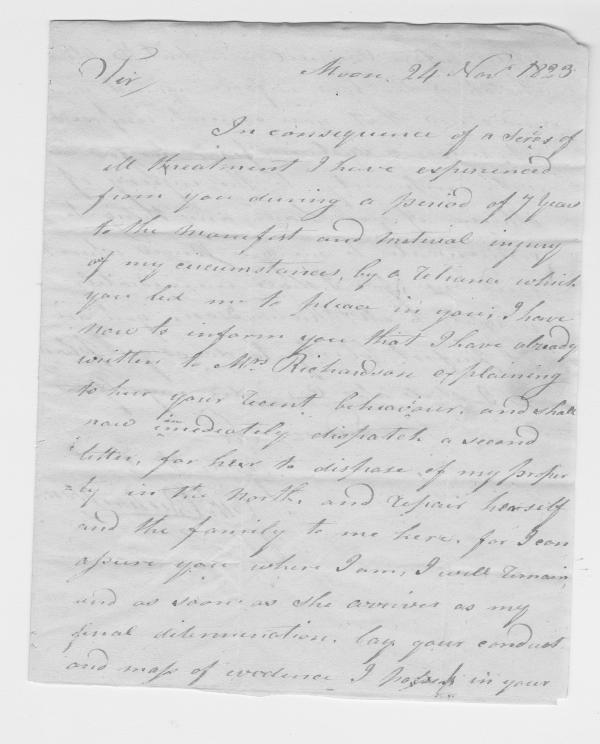 Sir, Moon 24 Novr 1823
In consequence of a series of
ill threatment I have experienced
from you during a period of 7 Years
to the manifest and material injury
of my circumstances, by a reliance which
you led me to place in you; I have
now to inform you that I have already
written to Mrs Richardson explaining
to her your recent behaviour, and shall
now immediately dispatch a second
letter, for her to dispose of my proper
=ty in the North, and repair herself
and the family to me here, for I can
assure you where I am, I will remain,
and as soon as she arrives as my
final determination. lay your conduct
and mass of evidence I possess in your